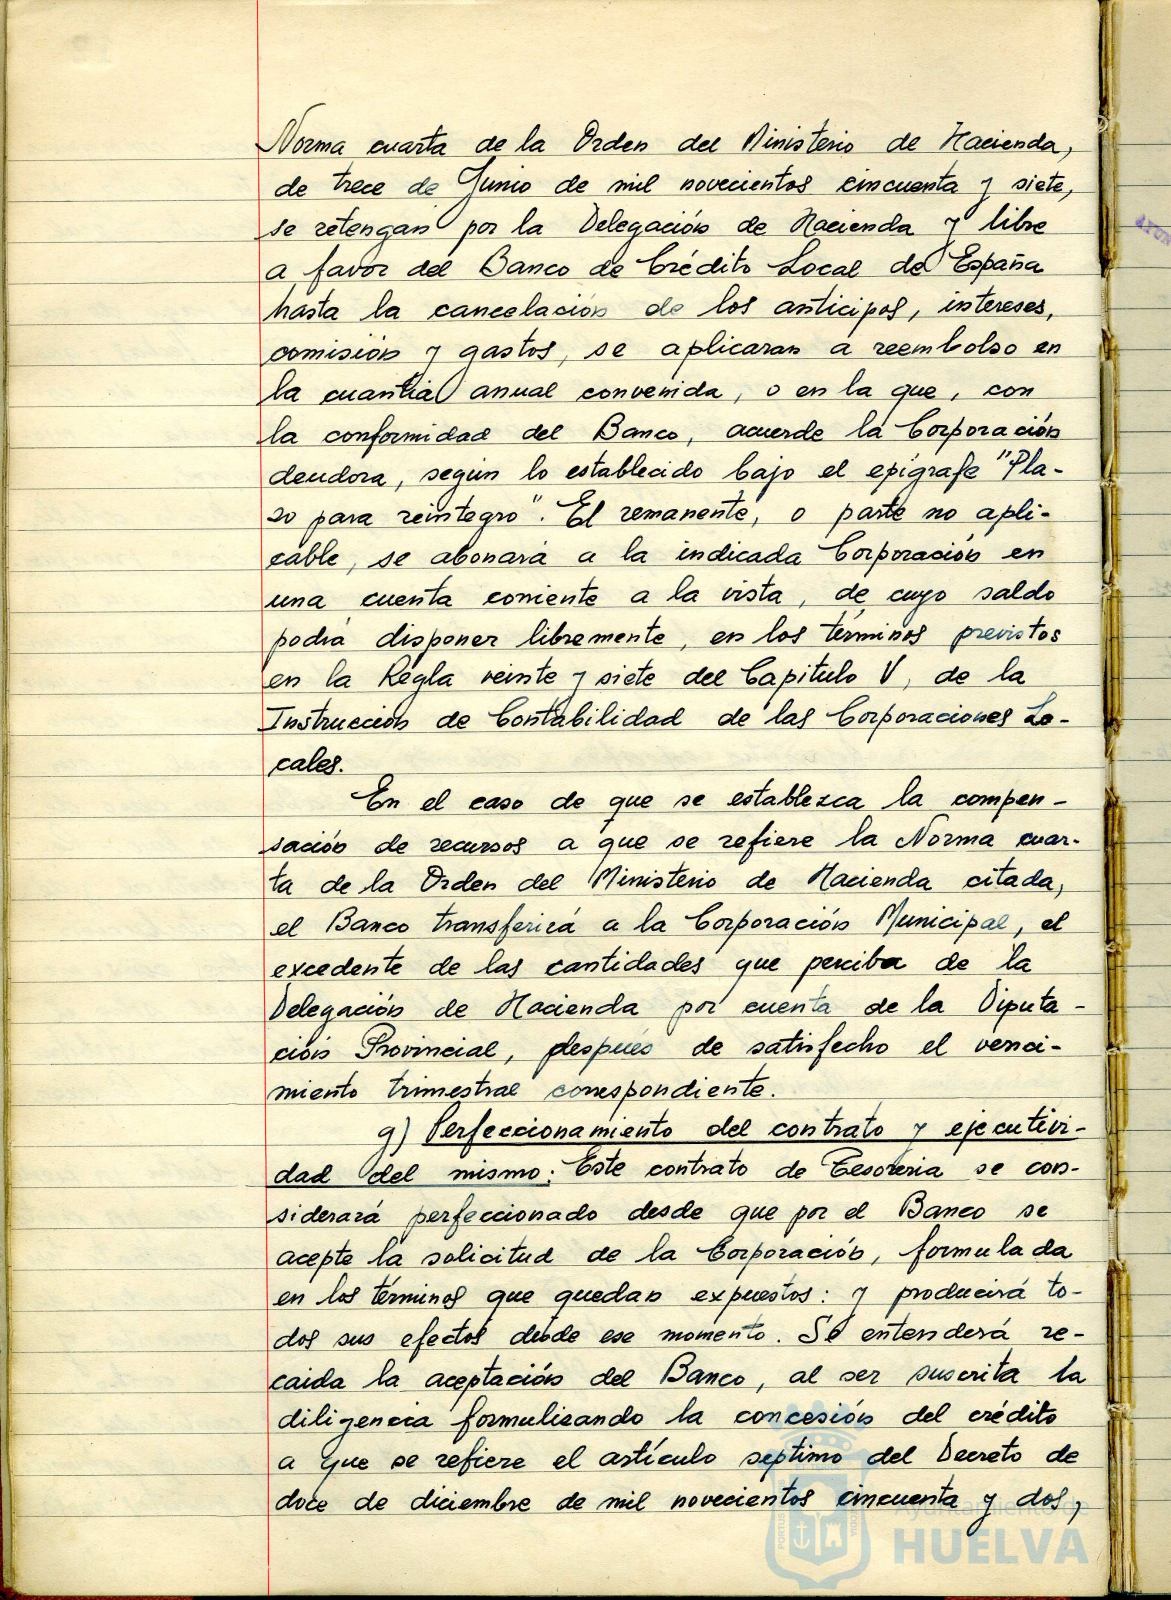 Norma cuarta de la Orden del Ministerio de Hacienda,
de trece de Junio de mil novecientos cincuenta y siete,
se retengan por la Delegación de Hacienda y libre
a favor del Banco de Crédito Local de España
hasta la cancelación de los anticipos, intereses,
comisión y gastos, se aplicaran a reembolso en
la cuantia anual convenida, o en la que, con
la conformidad del Banco, acuerde la Corporación
deudora, según lo establecido bajo el epígrafe "Pla-
zo para reintegro". El remanente, o parte no apli-
cable, se abonará a la indicada Corporación en
una cuenta corriente a la vista, de cuyo saldo
podrá disponer libremente, en los términos previstos
en la Regla veinte y siete del Capitulo V, de la
Instrucción de Contabilidad de las Corporaciones Lo-
cales.
En el caso de que se establezca la compen-
sación de recursos a que se refiere la Norma cuar-
ta de la Orden del Ministerio de Hacienda citada,
el Banco transferirá a la Corporación Municipal, el
excedente de las cantidades que perciba de la
Delegación de Hacienda por cuenta de la Diputa-
ción Provincial, después de satisfecho el venci-
miento trimestral correspondiente.
g) Perfeccionamiento del contrato y ejecutivi-
dad del mismo: Este contrato de Tesoreria se con-
siderará perfeccionado desde que por el Banco se
acepte la solicitud de la Corporación, formulada
en los términos que quedan expuestos: y producirá to-
dos sus efectos desde ese momento. Se entenderá re-
caida la aceptación del Banco, al ser suscrita la
diligencia formulizando la concesión del crédito
a que se refiere el artículo septimo del Decreto de
doce de diciembre de mil novecientos cincuenta y dos,
Ayuntamiento de
HUELVA